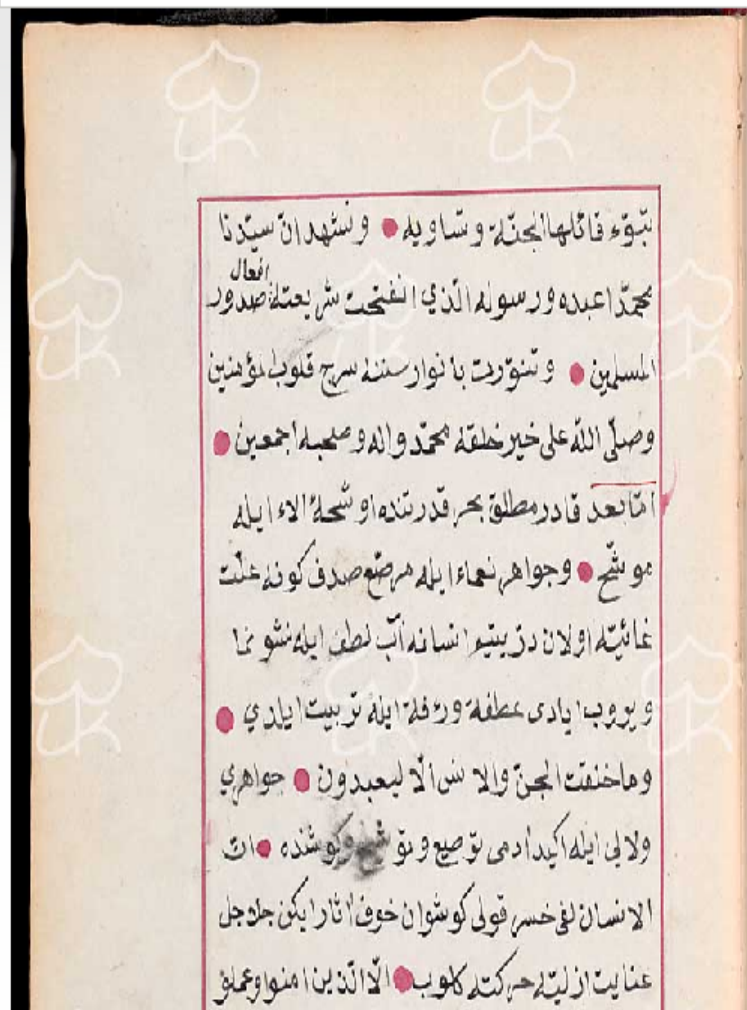 تبوّء قائلها الجنّة وتساويه ● ونشهد انّ سيّدنا
محمّدا عبده ورسوله الّذي انفتحت بشريعته افعال صدور
المسلمين ● وتنوّرت بانوار سننه سرج قلوب المؤمنين
وصلّى اللّه على خير خلقه محمّد واله وصحبه اجمعين ●
امّا بعد قادر مطلق بحر قدرتنده اوشحۀ الاء ايله
موشّح ● وجواهر نعماء ايله مرصّع صدف كونه علّت
غائيّه اولان درّ يتيم انسانه آب لطف ايله نشو نما
ويروب ايادى عطفة ورافة ايله تربيت ايلدي ●
وما خلقت الجنّ والانس الّا ليعبدون ● جواهري
ولالى ايله اكيد ادمى توصيع وتوشيح كوشنده ● انّ
الانسان لفى خسر قولى كوشوان خوف اثار ايكن جلّ جل
عنايت ازليّه حركته كلوب ● الّا الّذين امنوا وعملو